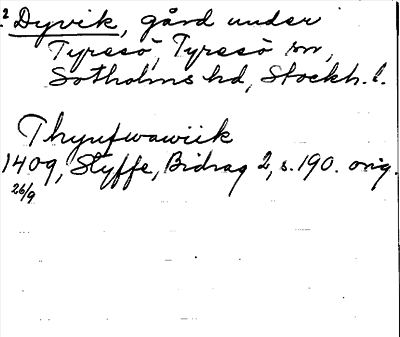 ? Dyvik, gård under
Tyresö, Tyresö sn,
Sotholms hd, Stockh. l.
Thyufwawiik
1409, Styffe, Bidrag 2, s. 190. orig.
26/9